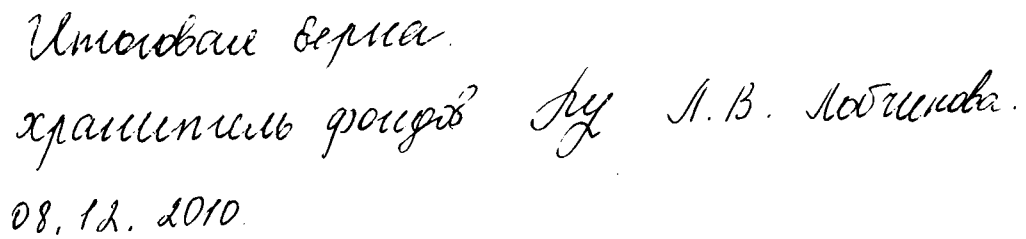 Итоговая верна.
хранитель фондов Л. В. Лобчикова.
08.12.2010